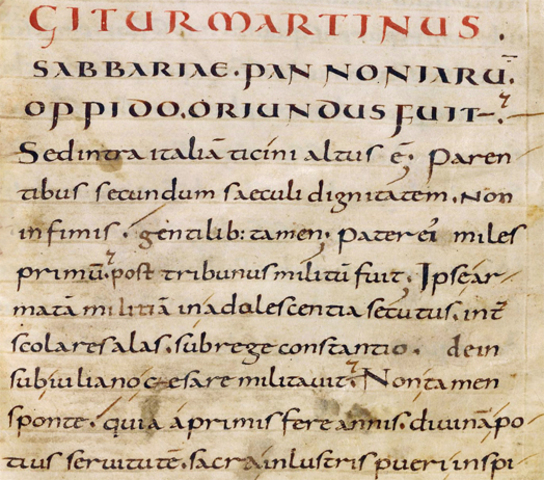 GITUR MARTINUS .
SABBARIAE . PANNONIARŪ .
OPPIDO . ORIUNDUS FUIT .
Sed intra italiā ticini altus ē; Paren
tibus secundum saeculi dignitatem . Non
infimis . gentilib: tamen; Pater ei miles
primū . post tribunus militū fuit; Ipse ar
matā militiā in adolescentia secutus . int̄
scolares alas . sub rege constantio . dein
sub iuliano cęsare militavit . Non tamen
sponte . quia a primis fere annis . divinā po
tius servitutē . sacra inlustris pueri inspi